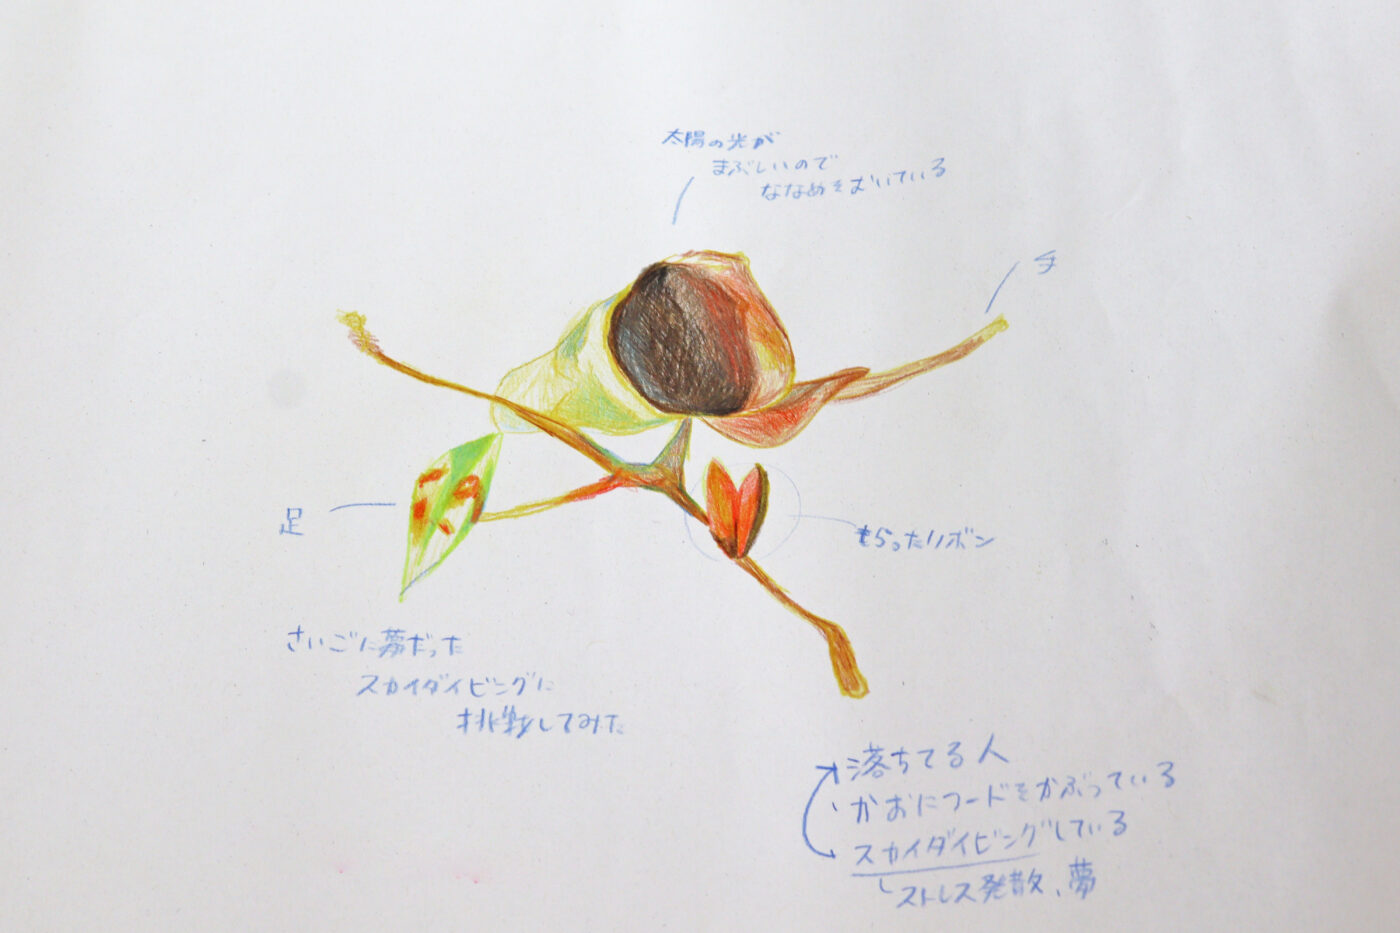 太陽の光が
まぶしいので
ななめをむいている
手
足
もらったリボン
さいごに夢だった
スカイダイビングに
挑戦してみた
落ちてる人
かおにフードをかぶっている
スカイダイビングしている
ストレス発散、夢